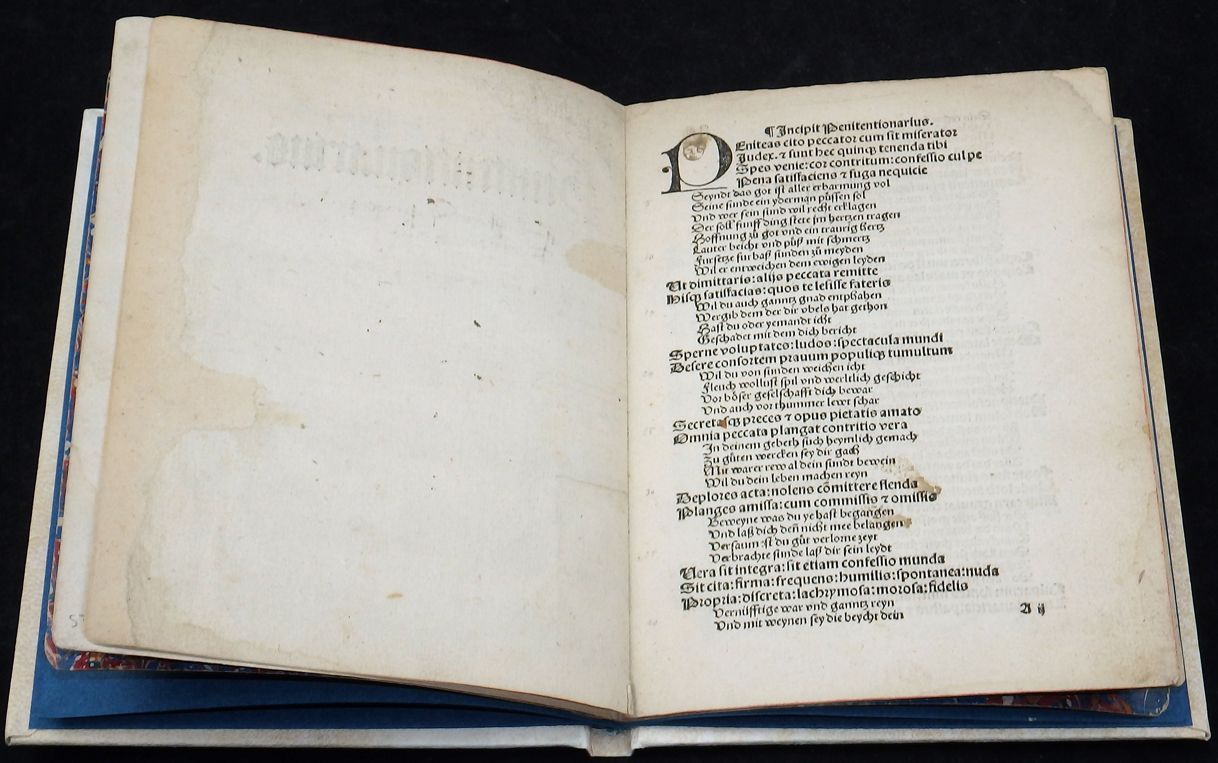 ¶ Incipit Penitentionarius.
PEniteas cito peccator cum sit miserator
Judex. ⁊ sunt hec quinqꝫ tenenda tibi
Spes venie: cor contritum: confessio culpe
Pena satisfaciens ⁊ fuga nequicie
Seyndt das got ist aller erbarmung vol
Seine sunde ein yderman püssen sol
Vnd wer sein sund wil recht erklagen
Der soll funff ding stete im hertzen tragen
Hoffnung zů got vnd ein traurig hertz
Lauter beicht vnd půß mit schmertz
Fursetze fur baß sunden zů meyden
Wil er entweichen dem ewigen leyden
Ut dimittaris: alijs peccata remitte
Hisqꝫ satisfacias: quos te lesisse fateris
Wil du auch ganntz gnad entphahen
Vergib dem der dir vbels hat gethon
Hast du oder yemandt icht
Geschadet mit dem dich bericht
Sperne voluptates: ludos: spectacula mundi
Desere consortem prauum populiqꝫ tumultum
Wil du von sunden weichen icht
Fleuch wollust spil vnd werltlich geschicht
Vor böser geselschafft dich bewar
Vnd auch vor thummer lewt schar
Secretasqꝫ preces ⁊ opus pietatis amato
Omnia peccata plangat contritio vera
In deinem gebeth such heymlich gemach
Zu gůten wercken sey dir gach
Mit warer rew al dein sundt bewein
Wil du dein leben machen reyn
Deplores acta: nolens cōmittere flenda
Planges amissa: cum commissis ⁊ omissis
Beweyne was du ye hast begangen
Vnd laß dich deñ nicht mee belangen
Versaum ist du gůt verlorne zeyt
Verbrachte sunde laß dir sein leydt
Uera sit integra: sit etiam confessio munda
Sit cita: firma: frequens: humilis: spontanea: nuda
Propria: discreta: lachrymosa: morosa: fidelis
Vernüfftige war vnd ganntz reyn
Vnd mit weynen sey die beycht dein
A ij